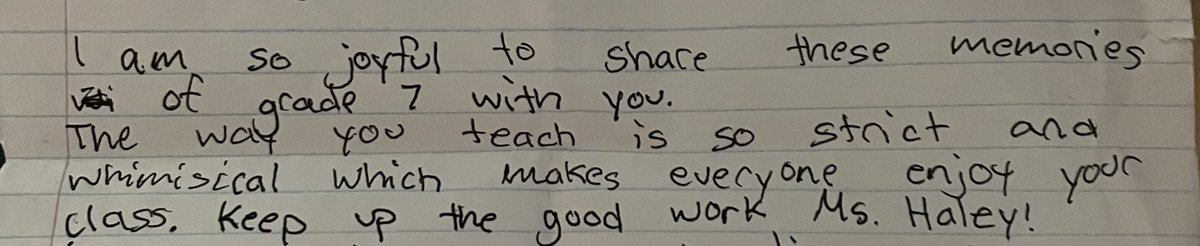 I am so joyful to share these memories
of grade 7 with you.
The way you teach is so strict and
whimisical which makes everyone enjoy your
class. Keep up the good work Ms. Haley!